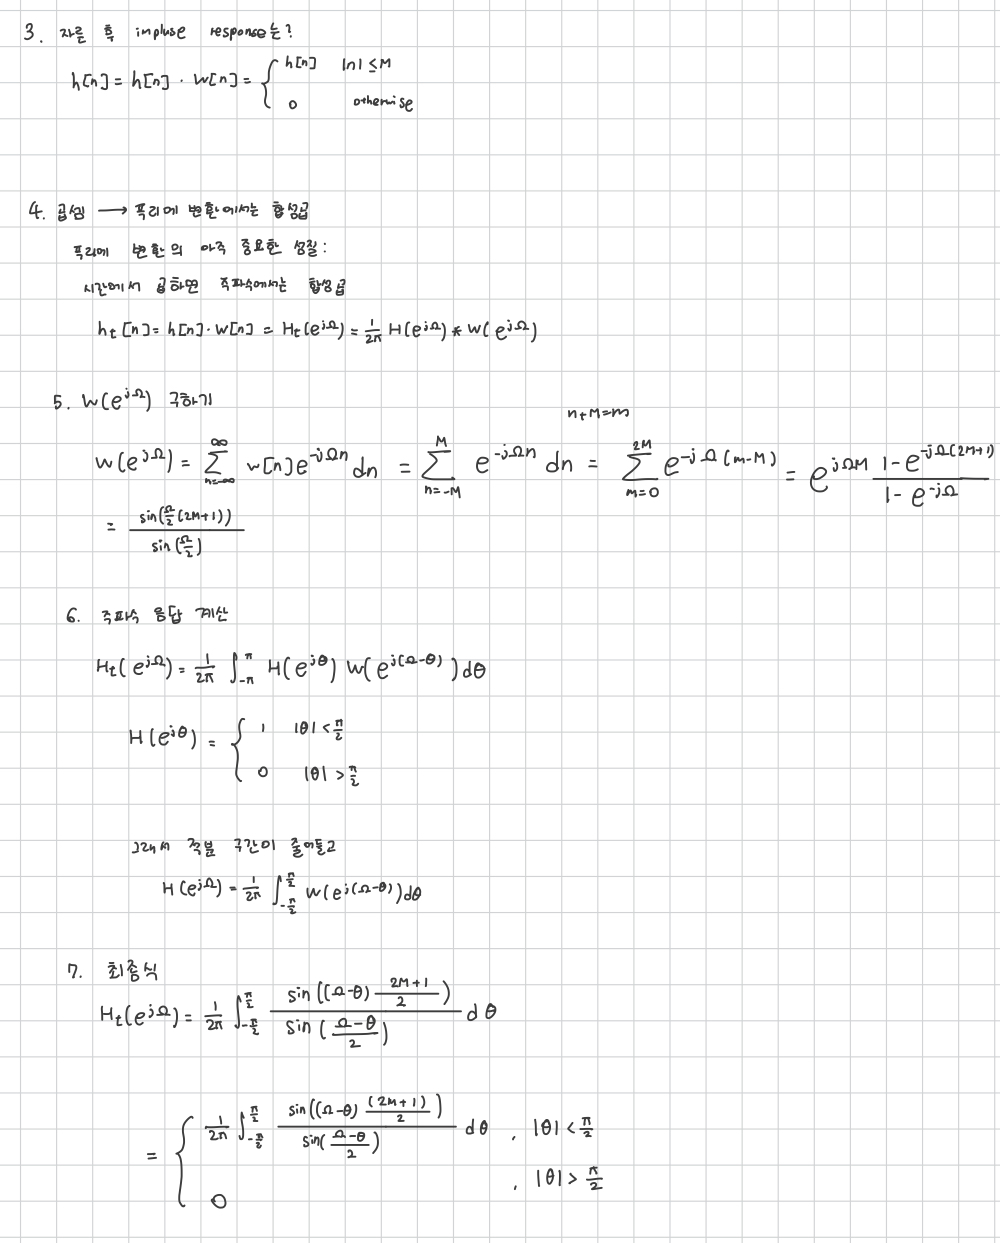 3. 자른 후 impluse response는?
h[n] = h[n] · w[n] = { h[n] |n| ≤ M
0 otherwise
4. 곱셈 → 푸리에 변환에서는 합성곱
푸리에 변환의 아주 중요한 성질:
시간에서 곱하면 주파수에서는 합성곱
h_t[n] = h[n]·w[n] = H_t(e^{jΩ}) = 1/2π H(e^{jΩ}) * W(e^{jΩ})
5. W(e^{jΩ}) 구하기
n+M=m
W(e^{jΩ}) = ∑_{n=-∞}^{∞} w[n]e^{-jΩn} dn = ∑_{n=-M}^{M} e^{-jΩn} dn = ∑_{m=0}^{2M} e^{-jΩ(m-M)} = e^{jΩM} (1-e^{-jΩ(2M+1)})/(1-e^{-jΩ})
= sin(Ω/2 (2M+1)) / sin(Ω/2)
6. 주파수 응답 계산
H_t(e^{jΩ}) = 1/2π ∫_{-π}^{π} H(e^{jθ}) W(e^{j(Ω-θ)}) dθ
H(e^{jθ}) = { 1 |θ| < π/2
0 |θ| > π/2
그래서 적분 구간이 줄어들고
H(e^{jΩ}) = 1/2π ∫_{-π/2}^{π/2} W(e^{j(Ω-θ)}) dθ
7. 최종식
H_t(e^{jΩ}) = 1/2π ∫_{-π/2}^{π/2} sin((Ω-θ) (2M+1)/2) / sin((Ω-θ)/2) dθ
= { 1/2π ∫_{-π/2}^{π/2} sin((Ω-θ) (2M+1)/2) / sin((Ω-θ)/2) dθ , |θ| < π/2
0 , |θ| > π/2